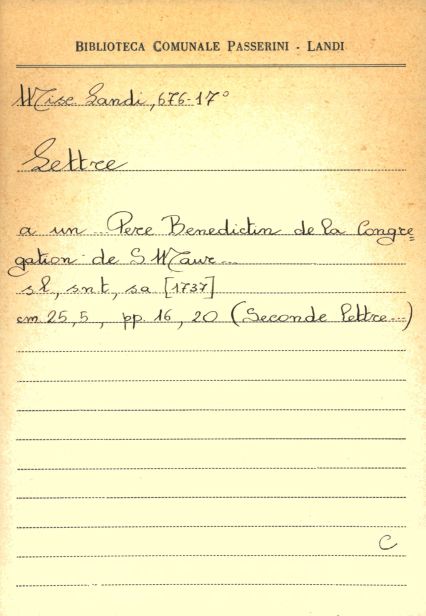 BIBLIOTECA COMUNALE PASSERINI - LANDI
Misc Landi, 676-17°
Lettre
a un... Pere Benedictin de la Congre=
gation de S Maur...
sl, snt, sa [1737]
cm 25,5, pp. 16, 20 (Seconde lettre...)
C